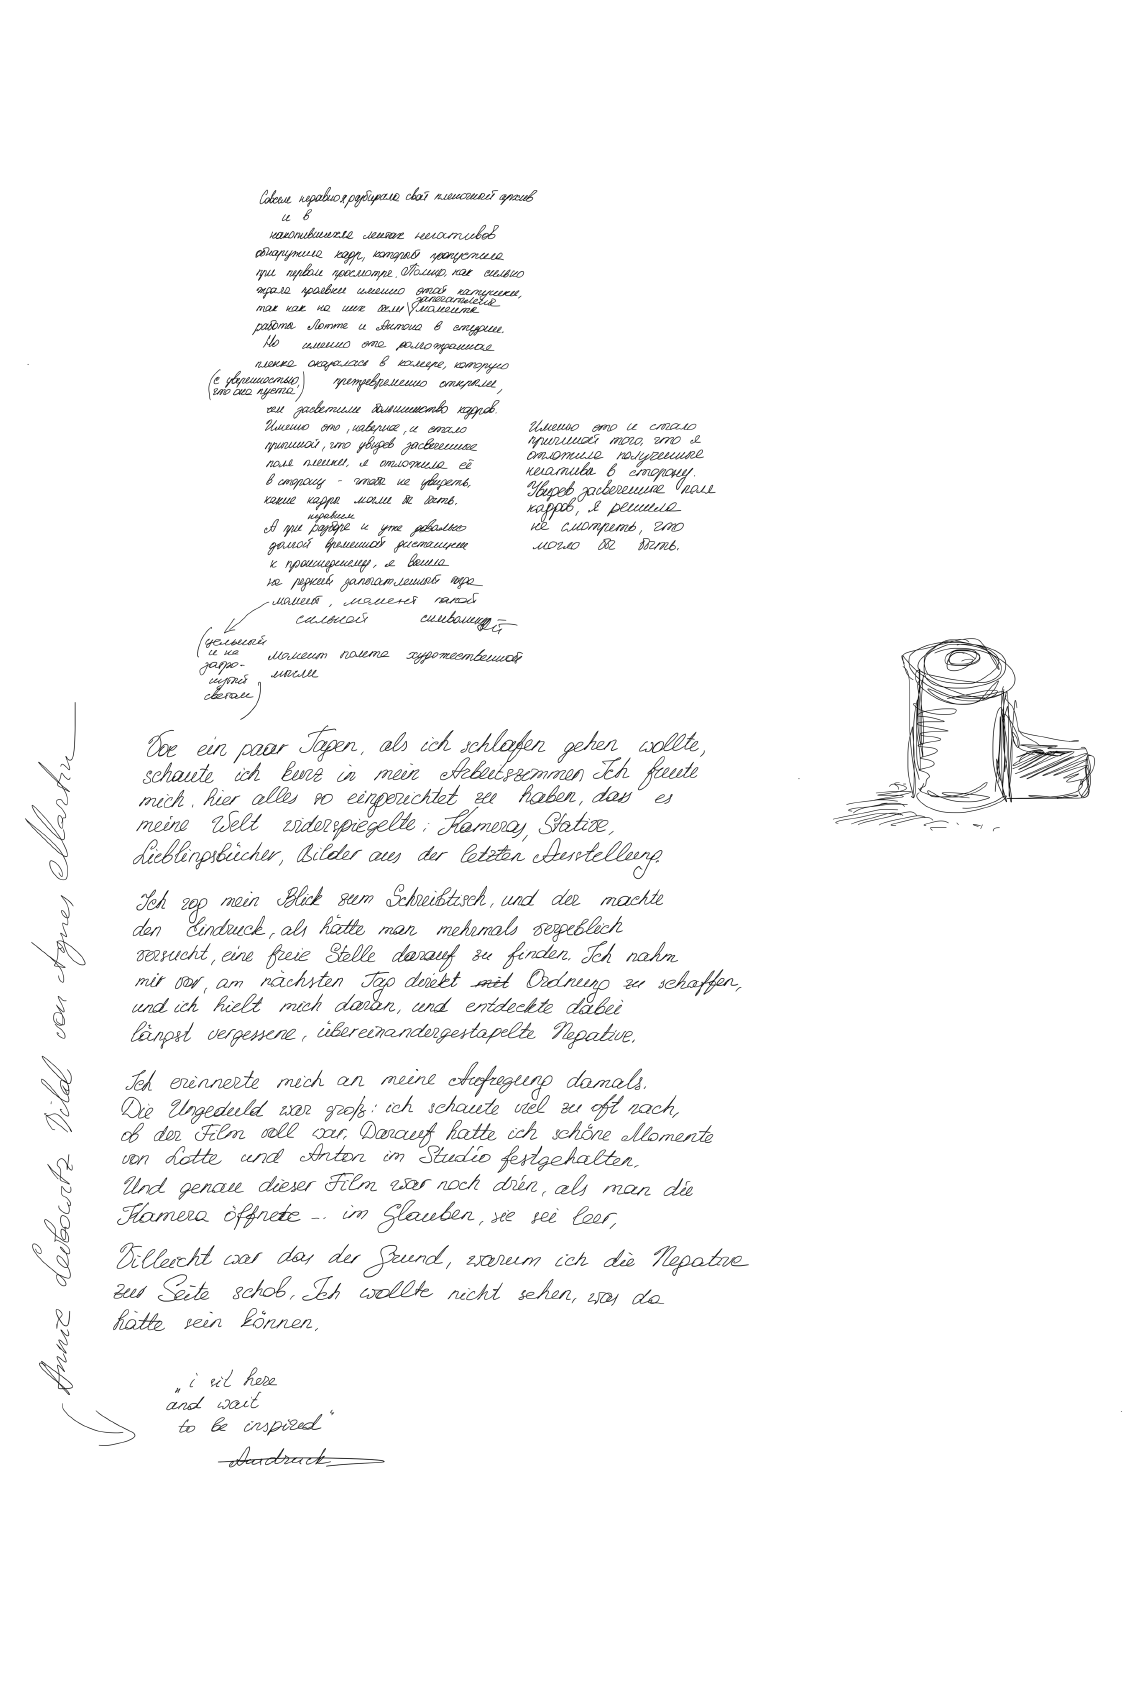 Совсем недавно я разбирала свой пленочный архив
и в
накопившихся лентах негативов
обнаружила кадр, который пропустила
при первом просмотре. Помню, как сильно
ждала проявки именно этой катушки,
так как на них были запечатлены моменты
работы Лотте и Антона в студии.
Но именно эта долгожданная
пленка оказалась в камере, которую
(с уверенностью, что она пуста) преждевременно открыли,
и засветили большинство кадров.
Именно это, наверное, и стало
причиной, что увидев засвеченные
поля пленки, я отложила её
в сторону - чтобы не увидеть,
какие кадры могли бы быть.
А при недавнем разборе и уже довольно
долгой временной дистанции
к произошедшему, я вышла
на редкий запечатленный
момент, момент такой
сильной символики
(цельный
и не
затро-
нутый
светом)
момент полета художественной
мысли
Именно это и стало
причиной того, что я
отложила полученные
негативы в сторону.
Увидев засвеченные поля
кадров, я решила
не смотреть, что
могло бы быть.
Vor ein paar Tagen, als ich schlafen gehen wollte,
schaute ich kurz in mein Arbeitszimmer. Ich freute
mich, hier alles so eingerichtet zu haben, dass es
meine Welt widerspiegelte: Kameras, Stative,
Lieblingsbücher, Bilder aus der letzten Ausstellung.
Ich zog mein Blick zum Schreibtisch, und der machte
den Eindruck, als hätte man mehrmals vergeblich
versucht, eine freie Stelle darauf zu finden. Ich nahm
mir vor, am nächsten Tag direkt mit Ordnung zu schaffen,
und ich hielt mich daran, und entdeckte dabei
längst vergessene, übereinandergestapelte Negative.
Ich erinnerte mich an meine Aufregung damals.
Die Ungeduld war groß: ich schaute viel zu oft nach,
ob der Film voll war. Darauf hatte ich schöne Momente
von Lotte und Anton im Studio festgehalten.
Und genau dieser Film war noch drin, als man die
Kamera öffnete - im Glauben, sie sei leer,
Villeicht war das der Grund, warum ich die Negative
zur Seite schob. Ich wollte nicht sehen, was da
hätte sein können.
„i sit here
and wait
to be inspired"
Ausdruck
Annie Leibowitz Bild von Agnes Martin